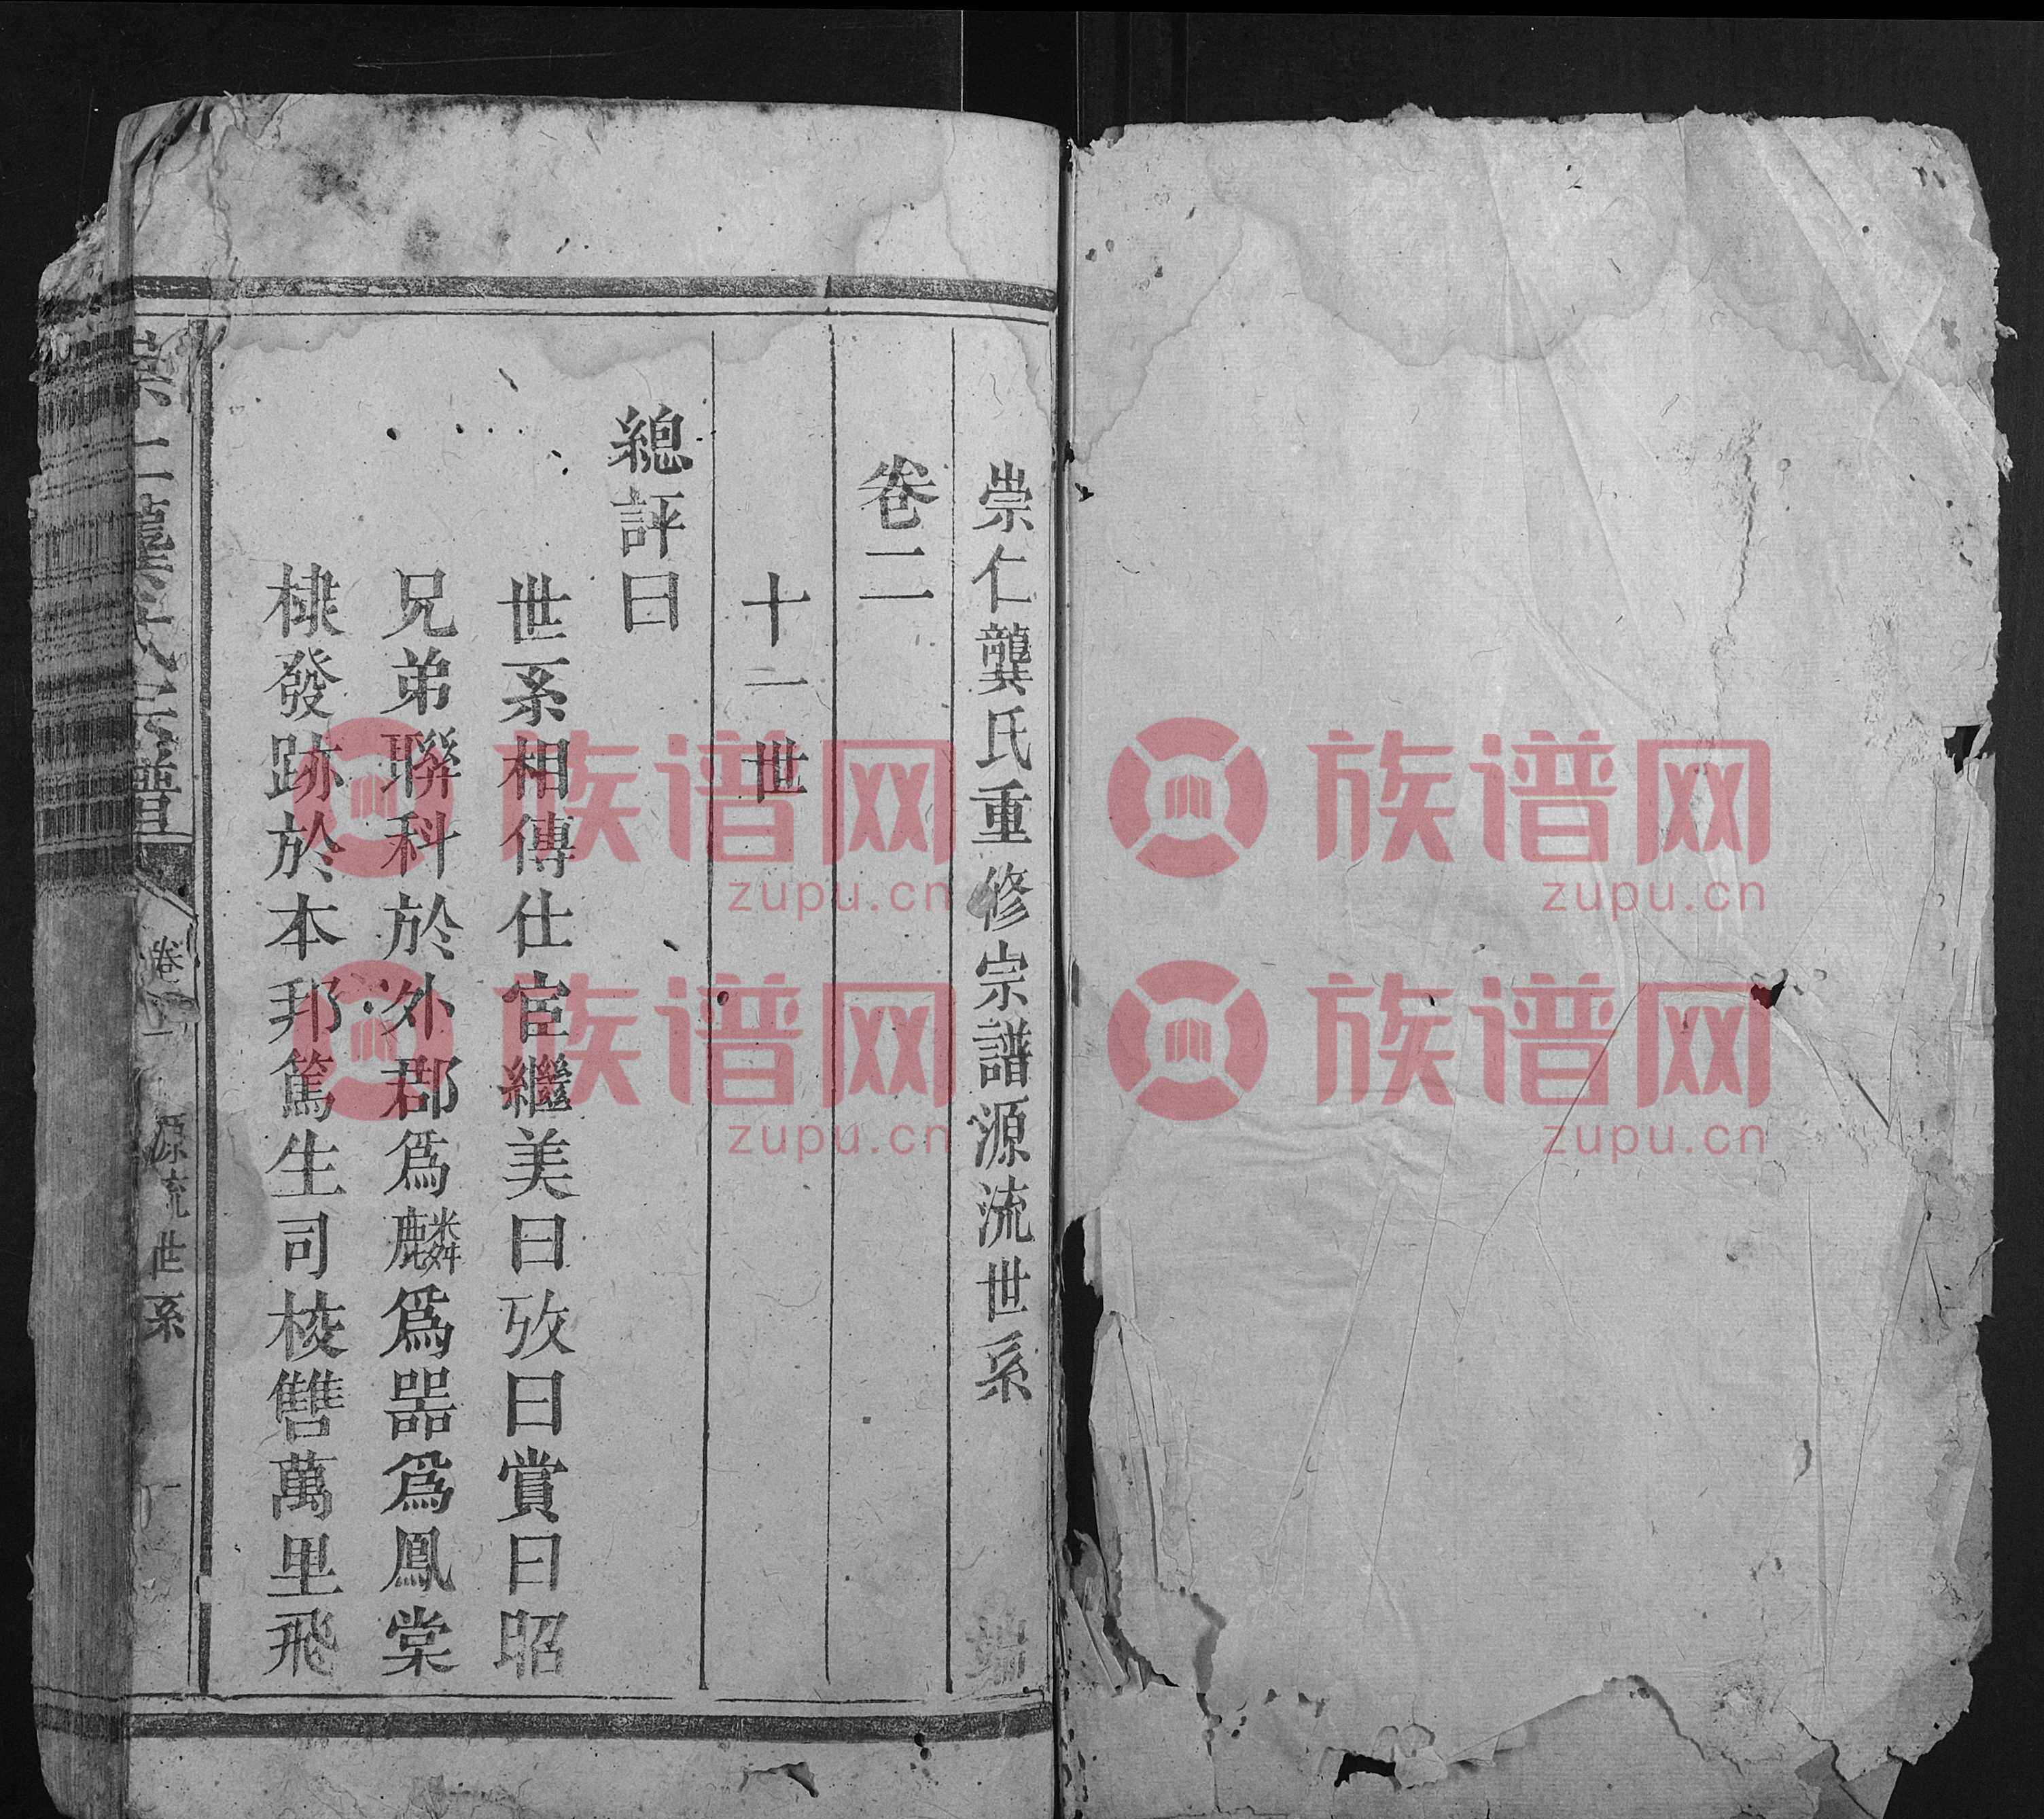 崇仁龔氏重修宗譜源流世系 端
卷二
十一世
總評曰
世系相傳仕宦繼美曰攷曰賞曰昭
兄弟聯科於外郡爲麟爲噐爲鳳棠
棣發跡於本邦篤生司梭讐萬里飛
崇仁龔氏宗譜
卷二
源流世系
一
族谱网
zupu.cn
族谱网
zupu.cn
族谱网
zupu.cn
族谱网
zupu.cn